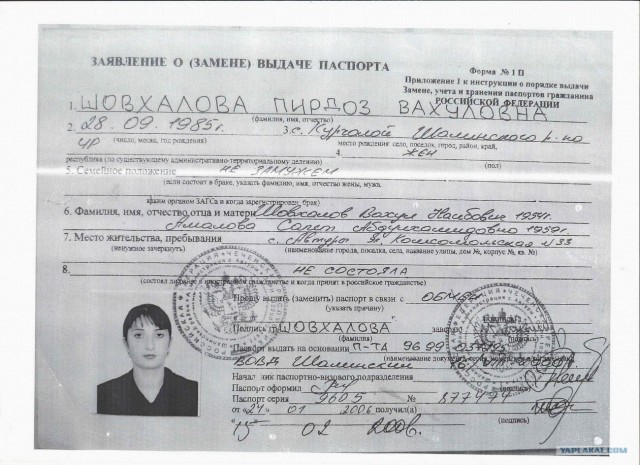 ЗАЯВЛЕНИЕ О (ЗАМЕНЕ) ВЫДАЧЕ ПАСПОРТА
Форма № 1 П
Приложение 1 к инструкции о порядке выдачи
Замене, учета и хранения паспортов гражданина
РОССИЙСКОЙ ФЕДЕРАЦИИ
1. ШОВХАЛОВА ПИРДОЗ ВАХУЛОВНА
(фамилия, имя, отчество)
2. 28.09.1985г. 3. с. Курчалой Шалинского р-на
(число, месяц, год рождения) место рождения село, поселок, город, район, край,
ЧР 4. ЖЕН
республика (по существующему административно-территориальному делению) (пол)
5. Семейное положение НЕ ЗАМУЖЕМ
(если состоит в браке, указать фамилию, имя, отчество жены, мужа,
каким органом ЗАГСа и когда зарегистрирован брак)
6. Фамилия, имя, отчество отца и матери Шовхалов Вахул 1954г.
1959г.
7. Место жительства, пребывания с. Автуры ул. Комсомольская №33
(ненужное зачеркнуть) (наименование города, поселка, села, название улицы, дом №, корпус №, кв. №)
8. НЕ СОСТОЯЛА
(состоял ли ранее в иностранном гражданстве и когда принят в российское гражданство)
Прошу выдать (заменить) паспорт в связи с
(указать причину)
Подпись гр. ШОВХАЛОВА
(фамилия)
Паспорт выдать на основании П-ТД 9699
(наименование
ВОВД Шалинский
Начальник паспортно-визового подразделения
Паспорт оформил
(подпись)
Паспорт серия 9605 № 877474
от "24" 01 2006 получил(а)
(подпись)
"15" 02 2006.
YAPLAKAL.COM